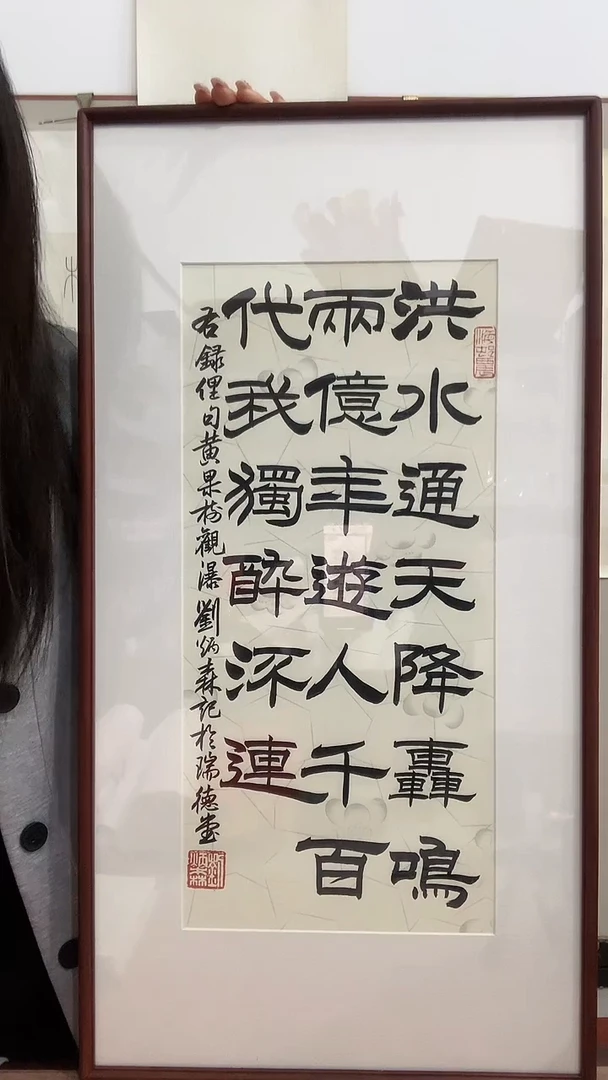 洪水通天降轟鳴
兩億年遊人千百
代我獨醉流連
右録俚句黃果樹觀瀑 劉炳森記於瑞德堂
劉炳森